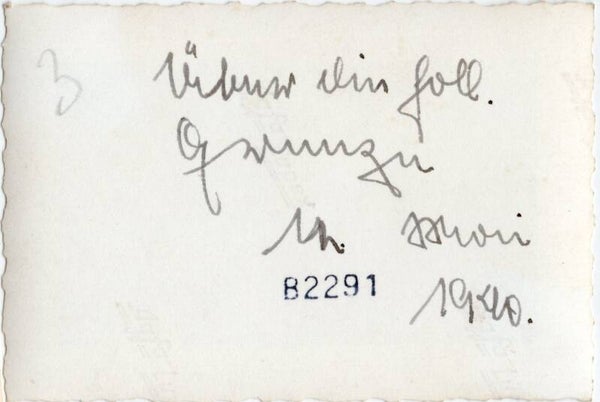 3
Über die holl.
Grenze
Mai
B2291
1940.